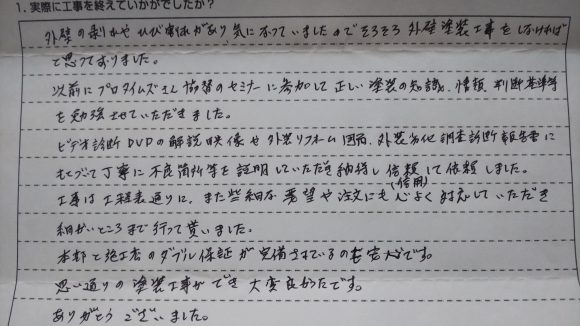 1. 実際に工事を終えていかがでしたか？
外壁の剥れやひび割れがあり気になっていましたのでそろそろ外壁塗装工事をしなければ
と思っておりました。
以前にプロタイムズさん協賛のセミナーに参加して正しい塗装の知識、情報、判断基準等
を勉強させていただきました。
ビデオ診断DVDの解説映像や外装リフォーム図面、外装劣化調査診断報告書に
もとづいて丁寧に不良箇所等を証明していただき納得し信頼して依頼しました。
(信用)
工事は工程表通りに、また些細な要望や注文にも心よく対応していただき
細かいところまで行って貰いました。
本部と施工店のダブル保証が完備されているのも安心です。
思い通りの塗装工事ができ大変良かったです。
ありがとうございました。